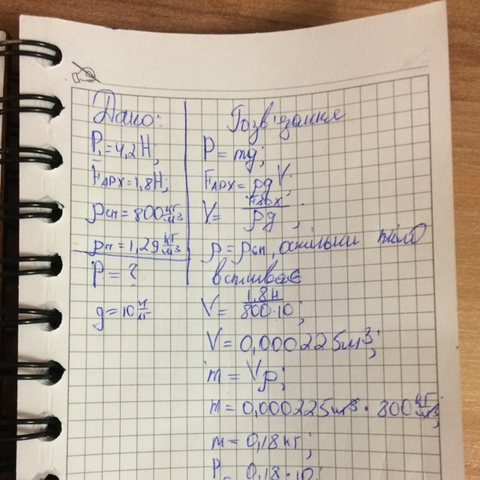 Дано:
P₁=4,2H,
Fарх=1,8H,
ρсп=800 кг/м³
ρп=1,29 кг/м³
P=?
g=10 м/с
Розв'язання
P=mg;
Fарх=ρgV;
V= Fарх/ρg;
ρ=ρсп, оскільки тіло
вспливає
V= 1,8н/800·10;
V=0,000225м³;
m=Vρ;
m=0,000225м³·800 кг/м³;
m=0,18кг;
P=0,18·10;